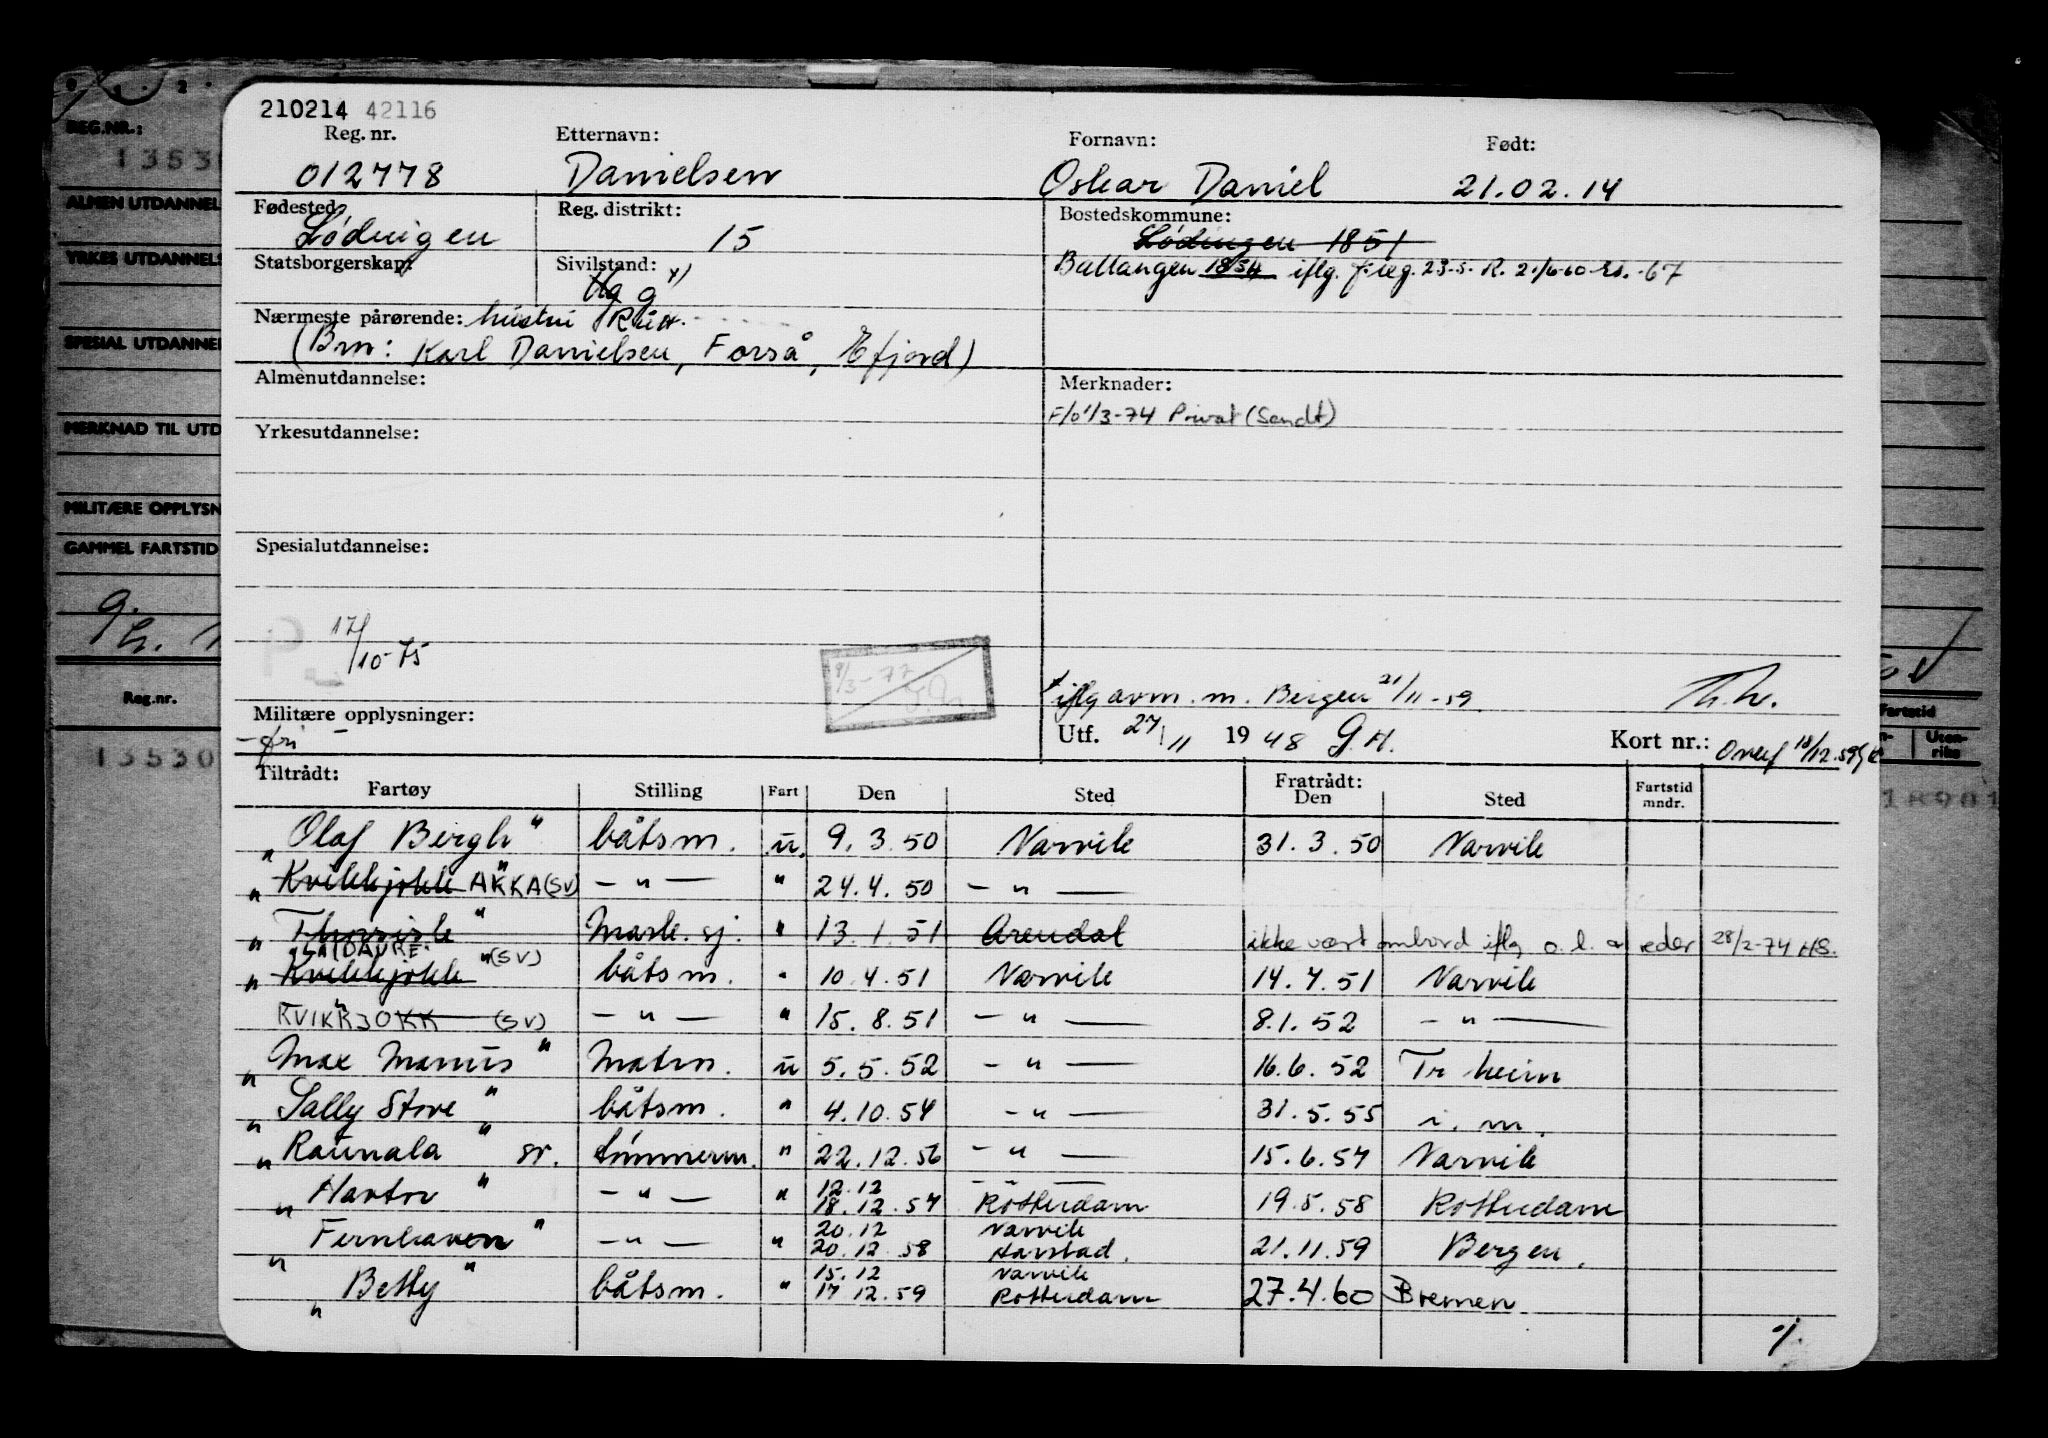 210214 42116
Reg. nr. Etternavn: Fornavn: Født:
012778 Danielsen Oskar Daniel 21.02.14
Fødested Reg. distrikt: Bostedskommune:
Lödingen 15 Lödingen 1851
Statsborgerskap: Sivilstand: Ballangen 1854 iflg. freg. 23-5- R. 21/6-60- -67
Ug g x)
Nærmeste pårørende: hustru Rut
(Brn: Karl Danielsen, Forså, Efjord)
Almenutdannelse: Merknader:
F/o 1/3-74 Privat (Sendt)
Yrkesutdannelse:
Spesialutdannelse:
P
17/10-75
9/3-77
x iflg avm. m. Bergen 21/11-59
Militære opplysninger:
- fri -
Utf. 27/11 1948 G.H. Kort nr.: Overf 18/12.59
Tiltrådt: Fratrådt:
Fartøy Stilling Fart Den Sted Den Sted Fartstid mndr.
"Olaf Bergh" båtsm. u. 9.3.50 Narvik 31.3.50 Narvik
"Kvikkjokk AKKA" (SV) — " — " 24.4.50 — " —
"Thorsisle" Mask. sj. " 13.1.51 Arendal ikke vært ombord iflg o.l. a reder 28/2-74 HS.
LAIDAURE
"Kvikkjokk" (SV) båtsm. " 10.4.51 Narvik 14.7.51 Narvik
KVIKKJOKK (SV) — " — " 15.8.51 — " — 8.1.52 — " —
"Max Manus" Matrs. u 5.5.52 — " — 16.6.52 Tr heim
"Sally Stove" båtsm. " 4.10.54 — " — 31.5.55 i. m.
"Raunala" sv. tömmerm. " 22.12.56 — " — 15.6.57 Narvik
"Havtor" — " — " 12.12 — " —
18.12.57 Rotterdam 19.5.58 Rotterdam
"Fernhaven" — " — " 20.12 Narvik
20.12.58 Harstad. 21.11.59 Bergen.
"Betty" båtsm. " 15.12 Narvik
17.12.59 Rotterdam 27.4.60 Bremen
./.
REG.NR.:
1353
ALMEN UTDANNEL
YRKES UTDANNELS
SPESIAL UTDANNE
MERKNAD TIL UTD
MILITÆRE OPPLYSN
GAMMEL FARTSTID
Reg.nr.
13530
Fartstid
Uten-
riks
18901